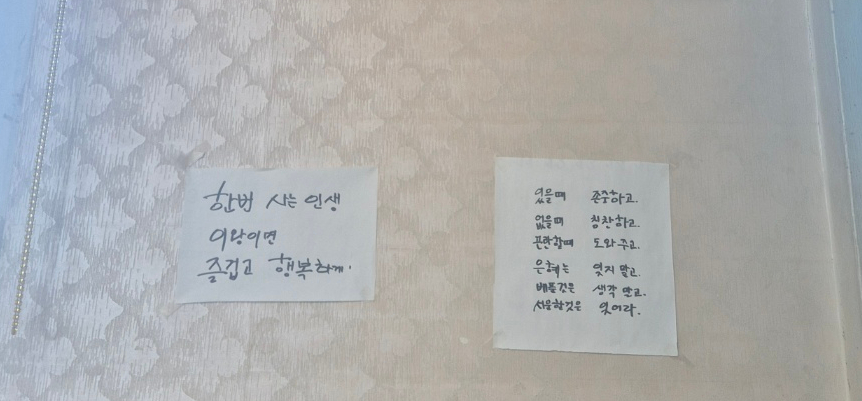 한번 사는 인생
이왕이면
즐겁고 행복하게.
있을때 존중하고.
없을때 칭찬하고.
곤란할때 도와주고.
은혜는 잊지 말고.
베풀것은 생각 말고.
서운한것은 잊어라.